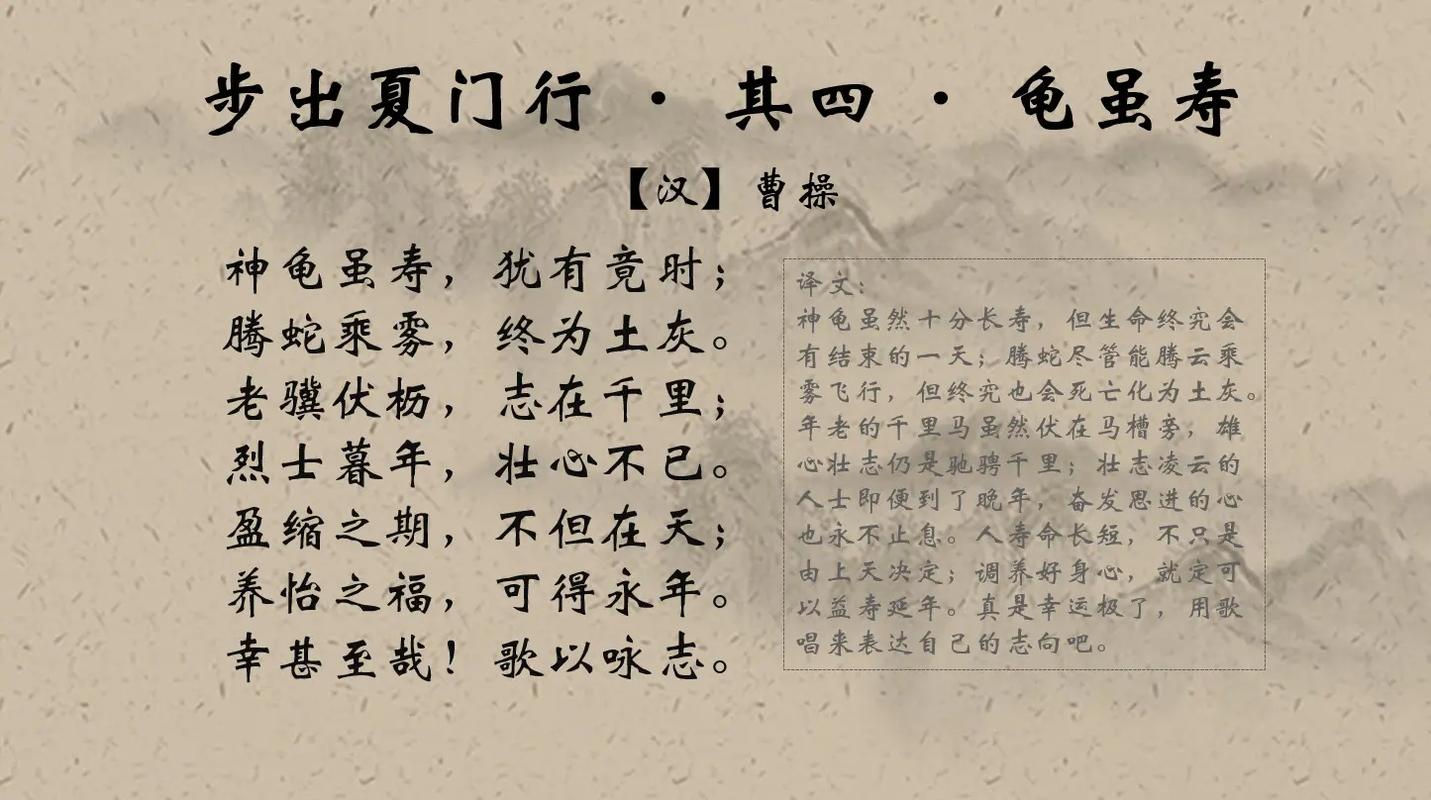 步出夏门行·其四·龟虽寿
【汉】曹操
神龟虽寿，犹有竟时；
腾蛇乘雾，终为土灰。
老骥伏枥，志在千里；
烈士暮年，壮心不已。
盈缩之期，不但在天；
养怡之福，可得永年。
幸甚至哉！歌以咏志。
译文：
神龟虽然十分长寿，但生命终究会
有结束的一天；腾蛇尽管能腾云乘
雾飞行，但终究也会死亡化为土灰。
年老的千里马虽然伏在马槽旁，雄
心壮志仍是驰骋千里；壮志凌云的
人士即便到了晚年，奋发思进的心
也永不止息。人寿命长短，不只是
由上天决定；调养好身心，就定可
以益寿延年。真是幸运极了，用歌
唱来表达自己的志向吧。